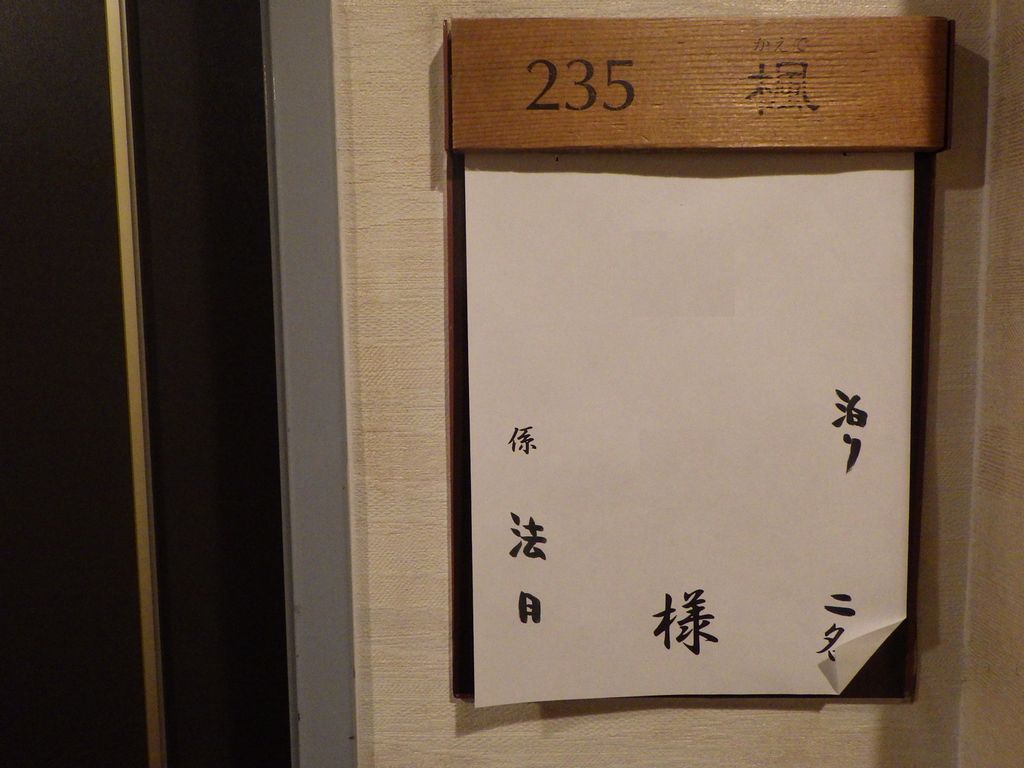 235 楓
かえで
泊り 二名
様
係 法月